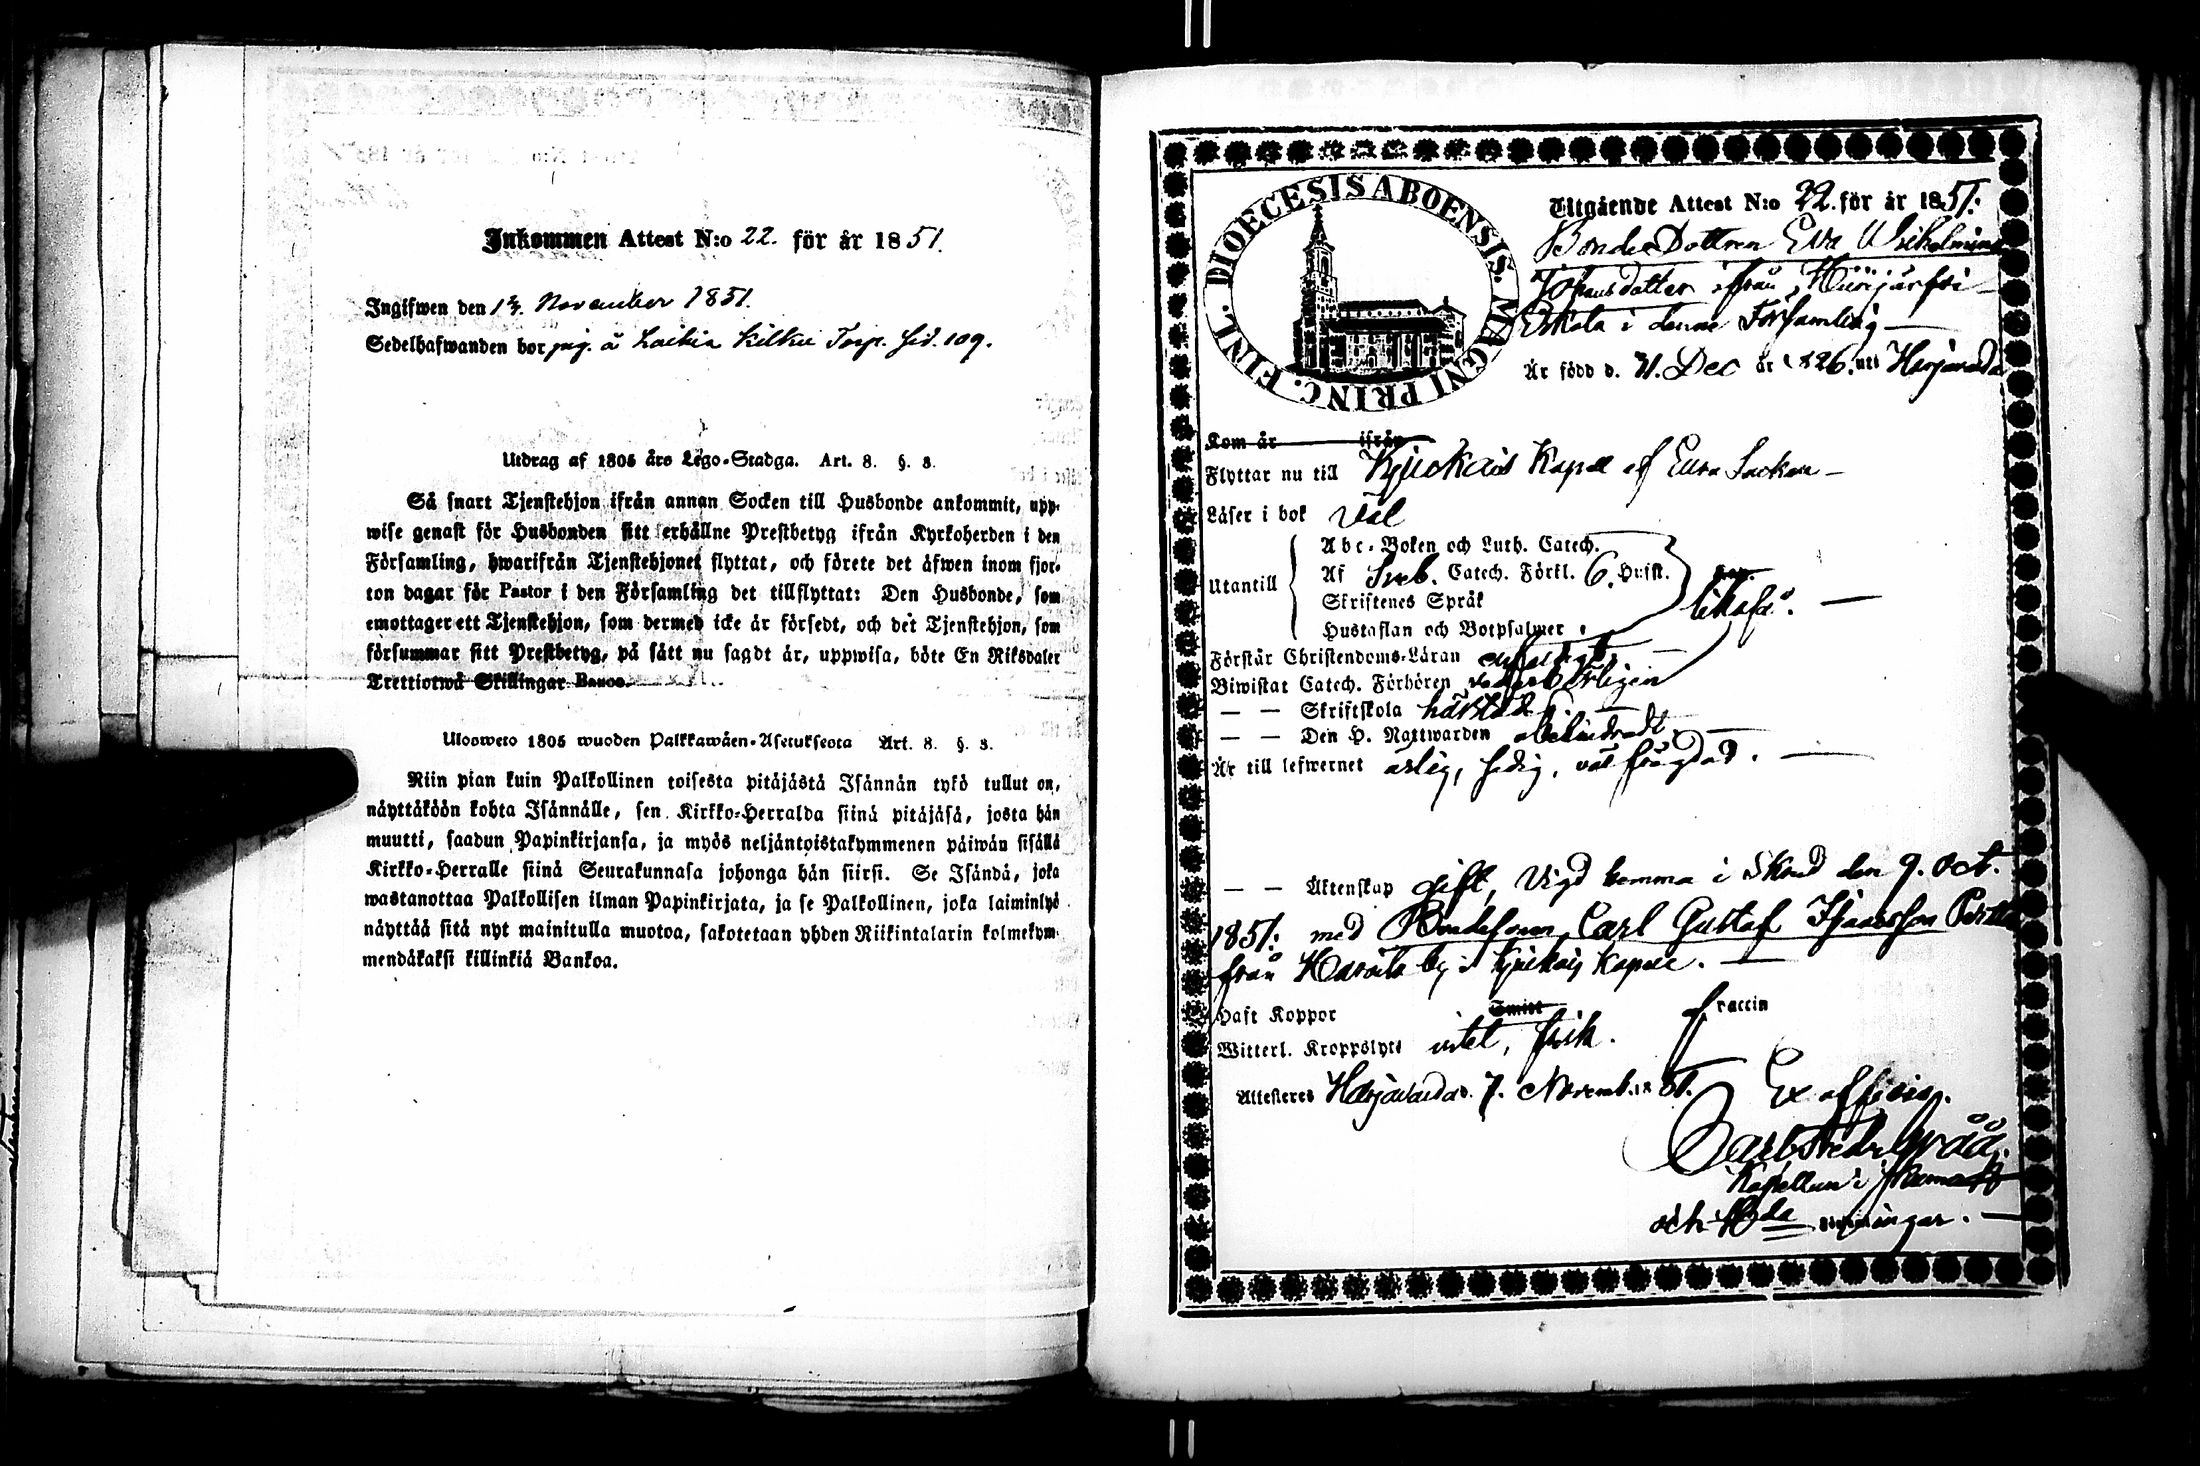 Inkommen Attest N:o 22. för år 1851.
Ingifwen den November 1851.
Sedelhafwanden bor på Laikia Kilku Torp. sid. 109.
Utdrag af 1805 års Lego-Stadga. Art. 8. §. 3.
Så snart Tjenstehjon ifrån annan Socken till Husbonde ankommit, upp-
wise genast för Husbonden sitt erhållne Prestbetyg ifrån Kyrkoherden i den
Församling, hwarifrån Tjenstehjonet flyttat, och förete det äfwen inom fjor-
ton dagar för Pastor i den Församling det tillflyttat: Den Husbonde, som
emottager ett Tjenstehjon, som dermed icke är försedt, och det Tjenstehjon, som
försummar sitt Prestbetyg, på sätt nu sagdt är, uppwisa, böte En Riksdaler
Trettiotwå Skillingar Banco.
Ulosweto 1805 wuoden Palkkawäen-Asetuksesta Art. 8. §. 3.
Niin pian kuin Palkollinen toisesta pitäjästä Isännän tykö tullut on,
näyttäköön kohta Isännälle, sen Kirkko-Herralda siinä pitäjäsä, josta hän
muutti, saadun Papinkirjansa, ja myös neljäntoistakymmenen päiwän sisällä
Kirkko-Herralle siinä Seurakunnasa johonga hän siirsi. Se Isändä, joka
wastanottaa Palkollisen ilman Papinkirjata, ja se Palkollinen, joka laiminlyö
näyttää sitä nyt mainitulla muotoa, sakotetaan yhden Riikintalarin kolmekym-
mendäkaksi killinkiä Bankoa.
DIOECESIS ABOENSIS. MAGNI PRINC. FINL.
Utgående Attest N:o 22. för år 1851.
Bonde Dottren Eva Wilhelmina
Johansdotter ifrån
i denne Församling
Är född d. 31. Dec år 1826. uti Harjavalda
Kom år ifrån
Flyttar nu till Kjukais Kapell af Eura Socken
Läser i bok väl
Utantill
Abc-Boken och Luth. Catech.
Af Sveb. Catech. Förkl. 6. Hufst.
Skriftenes Språk
Hustaflan och Botpsalmer
likaså.
Förstår Christendoms-Läran
Biwistat Catech. Förhören
— — Skriftskola
— — Den H. Nattwarden
Är till lefwernet ärlig, sedig, väl frägdad.
— — Äktenskap gift, Vigd hemma i Sknd den 9. Oct.
1851. med Bondesonen Carl Gustaf
från by i Kjukais Kapell.
Haft Koppor vaccin
Witterl. Kroppslyte intet, frisk.
Attesteras Harjavalda d. 7. Novemb. 1851.
Ex officio.
Kapellan i
och